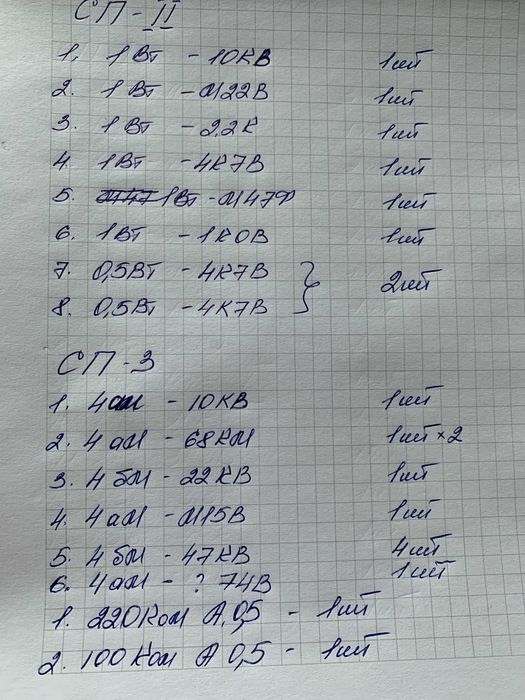 СП-II
1. 1Вт - 10КВ 1шт
2. 1Вт - М22В 1шт
3. 1Вт - 2,2К 1шт
4. 1Вт - 4К7В 1шт
5. 1Вт - М47Ф 1шт
6. 1Вт - 1К0В 1шт
7. 0,5Вт - 4К7В } 2шт
8. 0,5Вт - 4К7В
СП-3
1. 4аМ - 10КВ 1шт
2. 4аМ - 68КМ 1шт×2
3. 4бМ - 22КВ 1шт
4. 4аМ - М15В 1шт
5. 4бМ - 47КВ 4шт
6. 4аМ - ? 74В 1шт
1. 220Ком А 0,5 - 1шт
2. 100Ком А 0,5 - 1шт